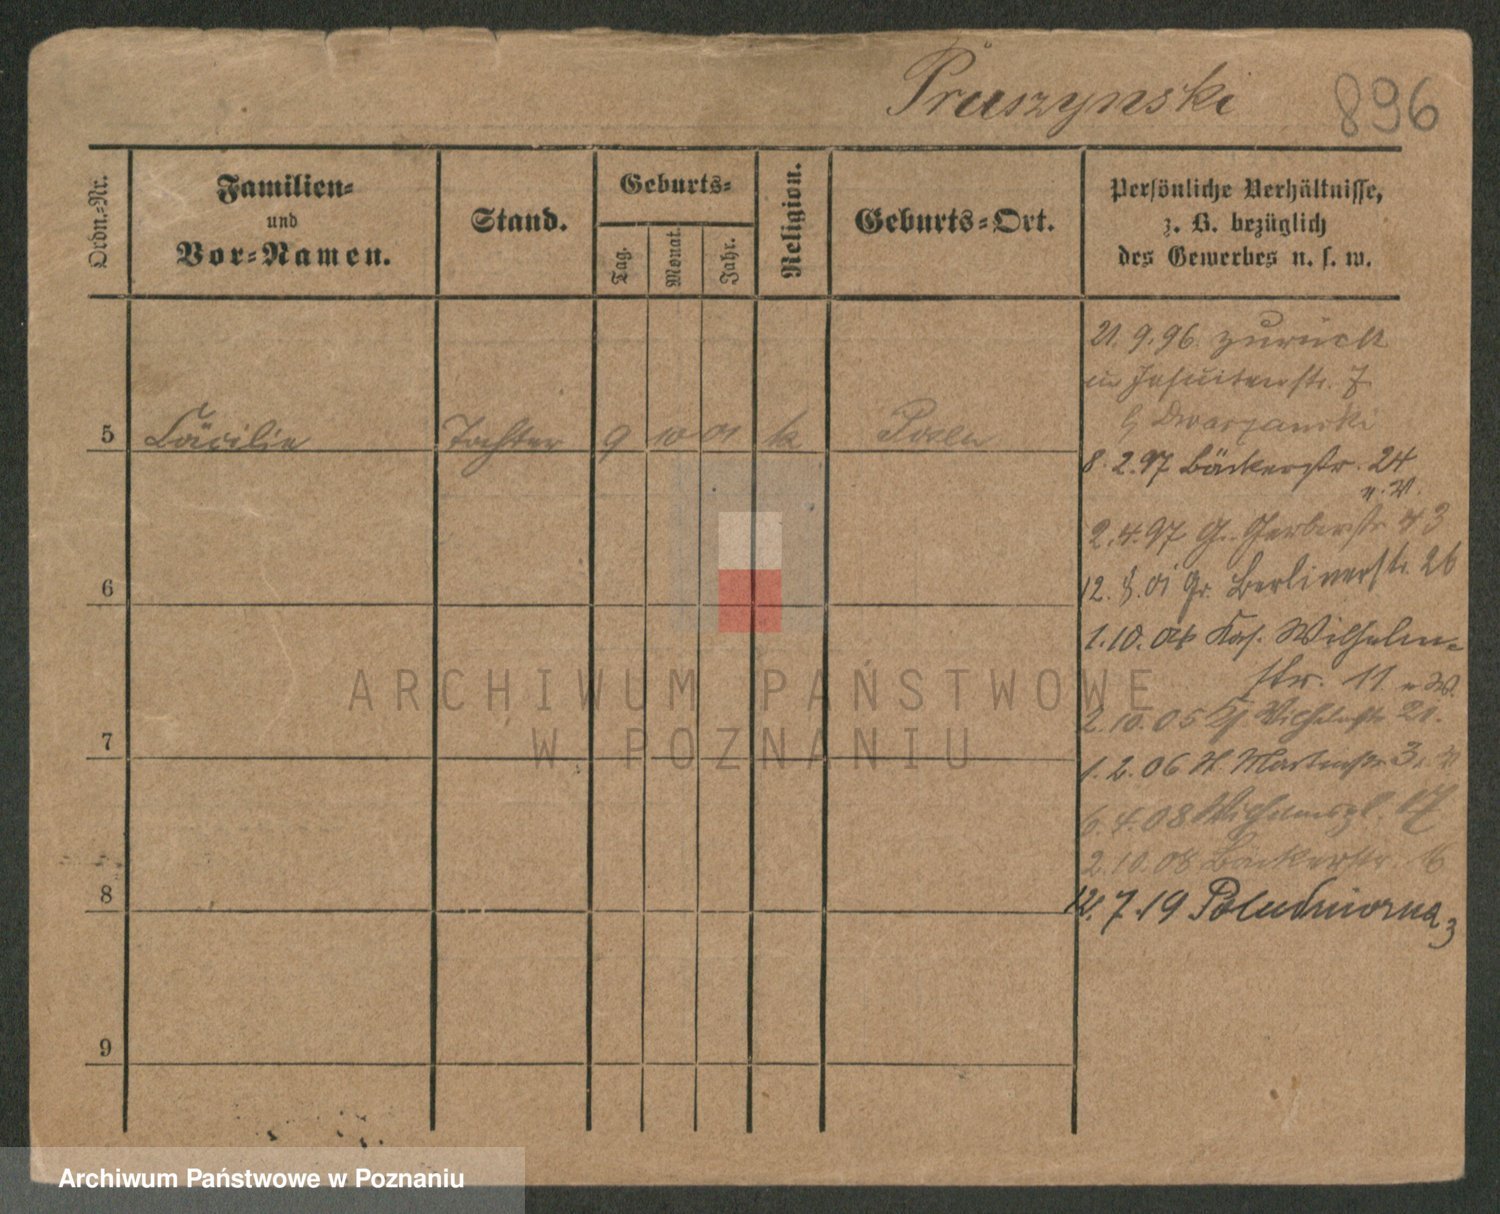 Pruszynski 896
Ordn.-Nr.
Familien-
und
Vor-Namen.
Stand.
Geburts-
Tag.
Monat.
Jahr.
Religion.
Geburts-Ort.
Persönliche Verhältnisse,
z. B. bezüglich
des Gewerbes u. s. w.
21. 9. 96. zurück
Jesuitenstr. 7
5 Cäcilie Tochter 9 10 01 k Posen
8. 2. 97 Bäckerstr. 24
2. 4. 97 Gr. Gerberstr. 43
6
12. 8. 01 Gr. Berlinerstr. 26
Wilhelm-
str. 11
2. 10. 05
7
1. 2. 06 St. Martinstr. 3
6. 4. 08 Wilhelmspl. 17
2. 10. 08 Bäckerstr.
8
12. 7. 19 Południowa 3
9
ARCHIWUM PAŃSTWOWE
W POZNANIU
Archiwum Państwowe w Poznaniu